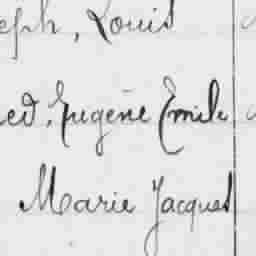 eph, Louis
ed, Eugène Emile
Marie Jacques